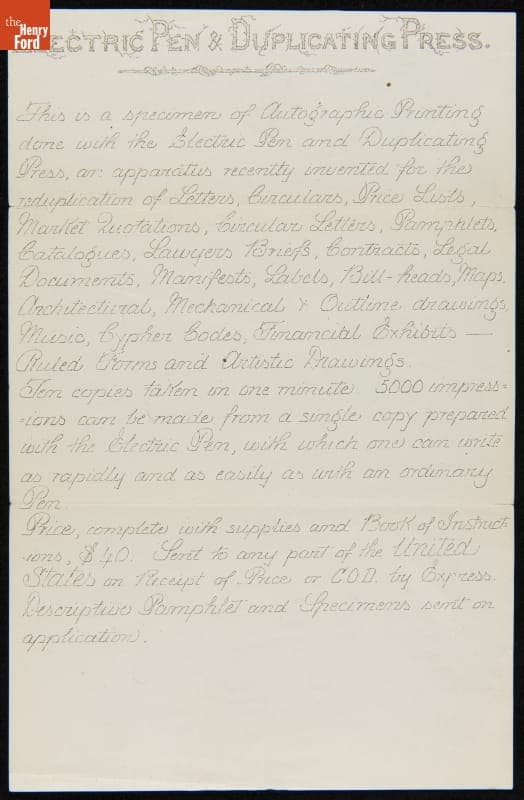 the
Henry
Ford
Electric Pen & Duplicating Press.
This is a specimen of Autographic Printing
done with the Electric Pen and Duplicating
Press, an apparatus recently invented for the
reduplication of Letters, Circulars, Price Lists,
Market Quotations, Circular Letters, Pamphlets,
Catalogues, Lawyers Briefs, Contracts, Legal
Documents, Manifests, Labels, Bill-heads, Maps,
Architectural, Mechanical & Outline drawings,
Music, Cypher Codes, Financial Exhibits —
Ruled Forms and Artistic Drawings.
Ten copies taken in one minute 5000 impress=
=ions can be made from a single copy prepared
with the Electric Pen, with which one can write
as rapidly and as easily as with an ordinary
Pen.
Price, complete with supplies and Book of Instruct
-ions, $40. Sent to any part of the United
States on Receipt of Price or C.O.D. by Express.
Descriptive Pamphlet and Specimens sent on
application.